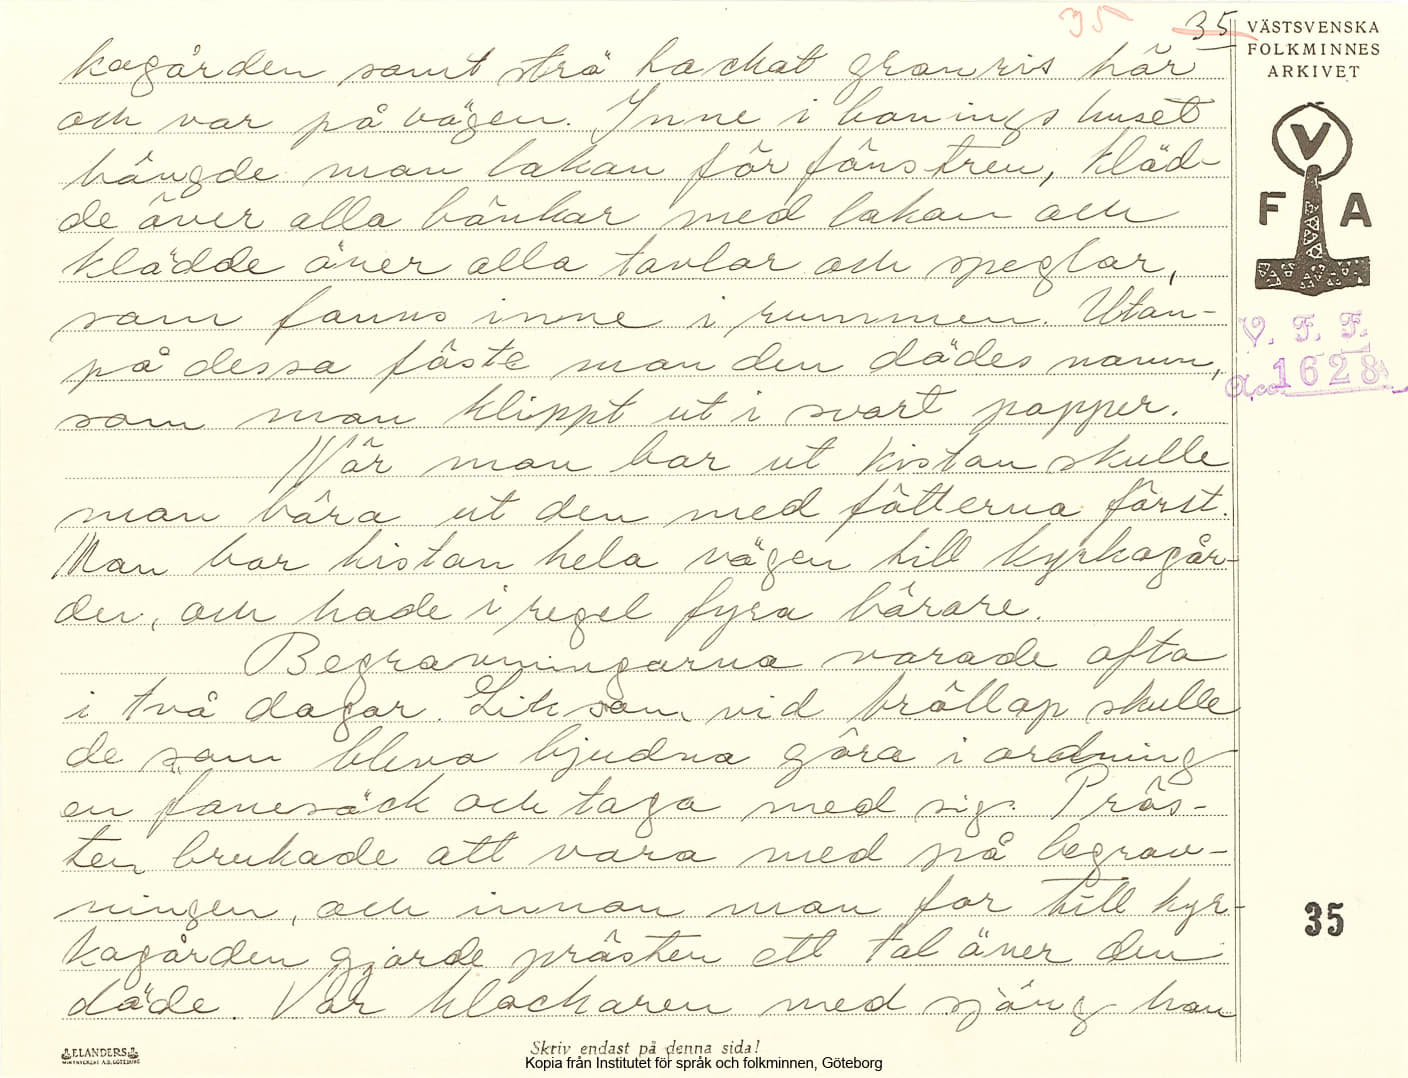 35 35
VÄSTSVENSKA
FOLKMINNES
ARKIVET
V
F A
V. F. F.
Acc. 1628
kagården samt strö hackat granris här
och var på vägen. Inne i boningshuset
hängde man lakan för fönstren, kläd-
de över alla bänkar med lakan och
klädde över alla tavlor och speglar,
som fanns inne i rummen. Utan-
på dessa fäste man den dödes namn,
som man klippt ut i svart papper.
När man bar ut kistan skulle
man bära ut den med fötterna först.
Man bar kistan hela vägen till kyrkogår-
den, och hade i regel fyra bärare.
Begravningarna varade ofta
i två dagar. Liksom vid bröllop skulle
de som blevo bjudna göra i ordning
en fanesäck och taga med sig. Präs-
ten brukade att vara med på begrav-
ningen, och innan man for till kyr-
kagården gjorde prästen ett tal över den
döde. Var klockaren med sjöng han
35
ELANDERS
Skriv endast på denna sida!
Kopia från Institutet för språk och folkminnen, Göteborg